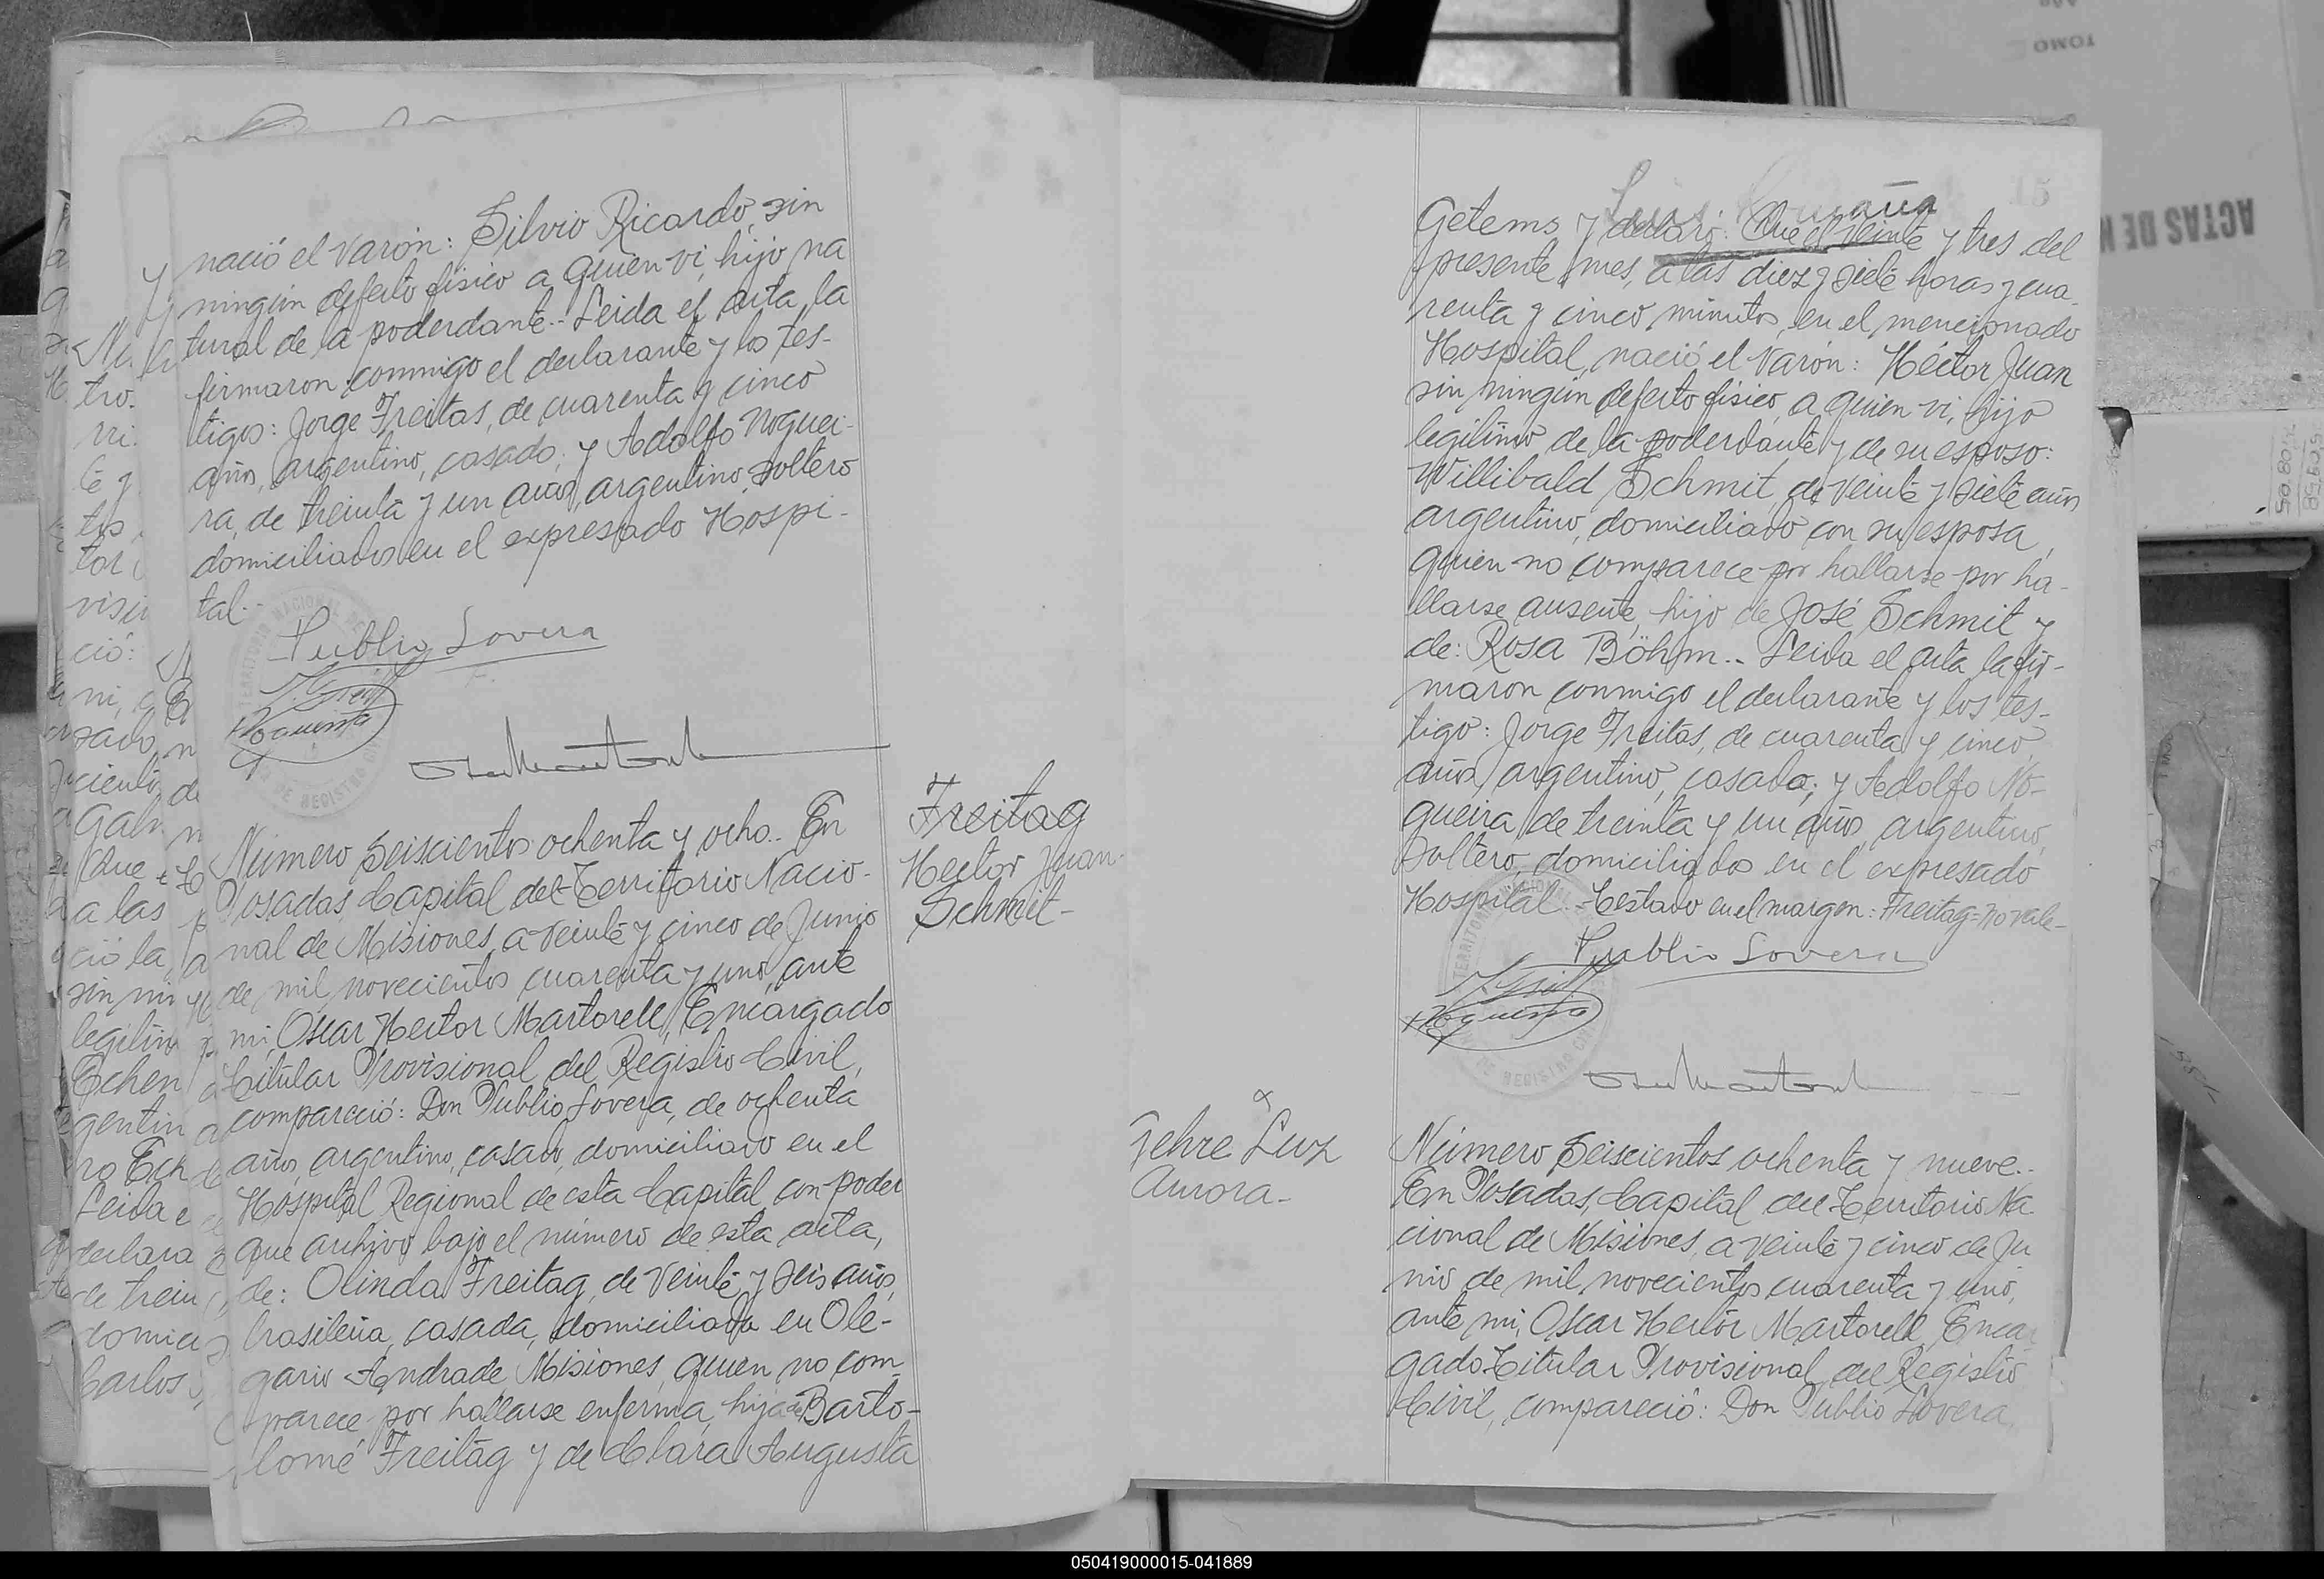 nació el Varón: Silvio Ricardo, sin
ningún defecto físico a quien vi, hijo na
tural de la poderdante.- Leida el acta, la
firmaron conmigo el declarante y los tes-
tigos: Jorge Freitas, de cuarenta y cinco
años, argentino, casado; y Adolfo Noguei-
ra, de treinta y un años, argentino, soltero
domiciliados en el expresado Hospi-
tal.-
Publio Lovera
Número Seiscientos ochenta y ocho.- En
Posadas Capital del Territorio Nacio-
nal de Misiones, a veinte y cinco de Junio
de mil novecientos cuarenta y uno, ante
mi, Oscar Hector Martorell, Encargado
Titular Provisional del Registro Civil,
compareció: Don Publio Lovera, de ochenta
años, argentino, casado, domiciliado en el
Hospital Regional de esta Capital con poder
que archivo bajo el número de esta acta,
de: Olinda Freitag, de veinte y seis años,
brasileña, casada, domiciliada en Ole-
gario Andrade Misiones, quien no com-
parece por hallarse enferma, hija de Barto-
lomé Freitag y de Clara Augusta
Freitag
Hector Juan
Schmit-
Getems y declaró: Que el veinte y tres del
presente mes, a las diez y siete horas y cua-
renta y cinco minutos, en el mencionado
Hospital, nació el Varón: Héctor Juan
sin ningún defecto físico, a quien vi, hijo
legitimo de la poderdante y de su esposo:
Willibald Schmit, de veinte y siete años
argentino, domiciliado con su esposa,
quien no comparece por hallarse por ha-
llarse ausente, hijo de José Schmit y
de: Rosa Böhm.- Leida el acta la fir-
maron conmigo el declarante y los tes-
tigo: Jorge Freitas, de cuarenta y cinco
años, argentino, casado; y Adolfo No-
gueira, de treinta y un años, argentino,
soltero, domiciliados en el expresado
Hospital.- Testado en el margen: Freitag=no vale-
Publio Lovera
Gehre Luz
Aurora-
Número Seiscientos ochenta y nueve.-
En Posadas, Capital del Territorio Na
cional de Misiones, a veinte y cinco de Ju
nio de mil novecientos cuarenta y uno,
ante mi, Oscar Hector Martorell, Encar
gado Titular Provisional del Registro
Civil, compareció: Don Publio Lovera,
TOMO
ACTAS DE N
050419000015-041889